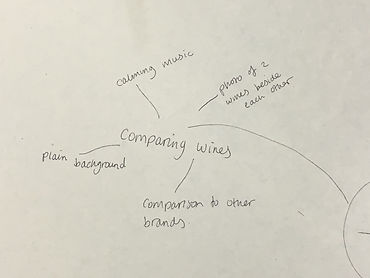 calming music
photo of 2
wines beside
each other
Comparing wines
plain background
Comparison to other
brands